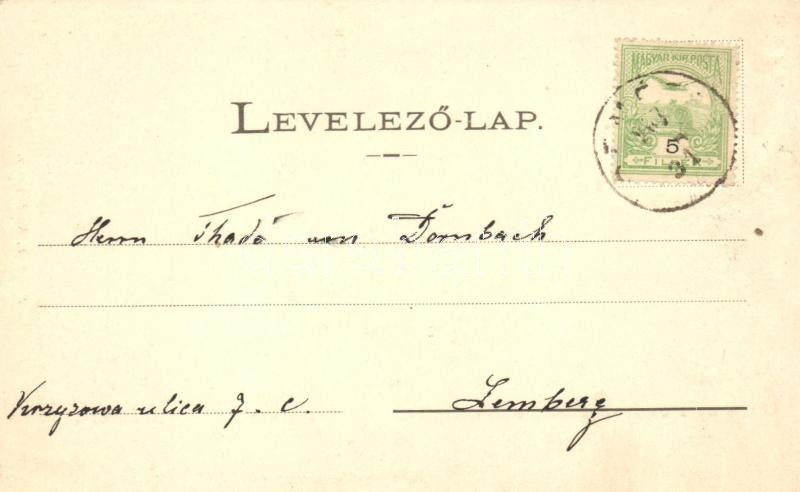 LEVELEZŐ-LAP.
MAGYAR KIR. POSTA
5
FILLÉR
Herrn Thadä von Dornbach
ulica 7. C.
Lemberg